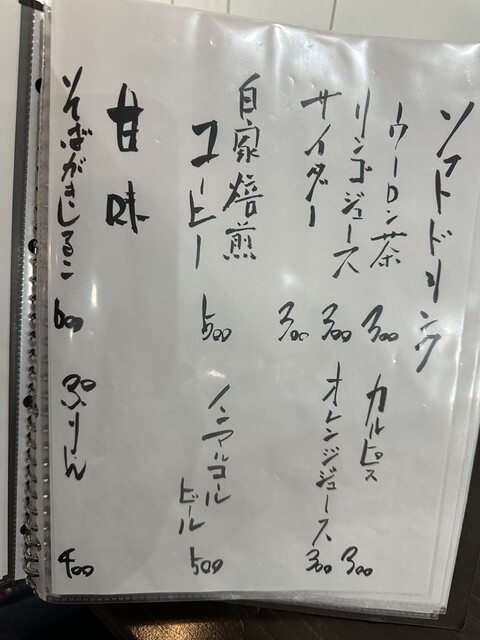 ソフトドリンク
ウーロン茶 300
カルピス 300
リンゴジュース 300
オレンジジュース 300
サイダー 300
自家焙煎
コーヒー 500
ノンアルコール
ビール 500
甘味
そばがきしるこ 600
ぷりん 400